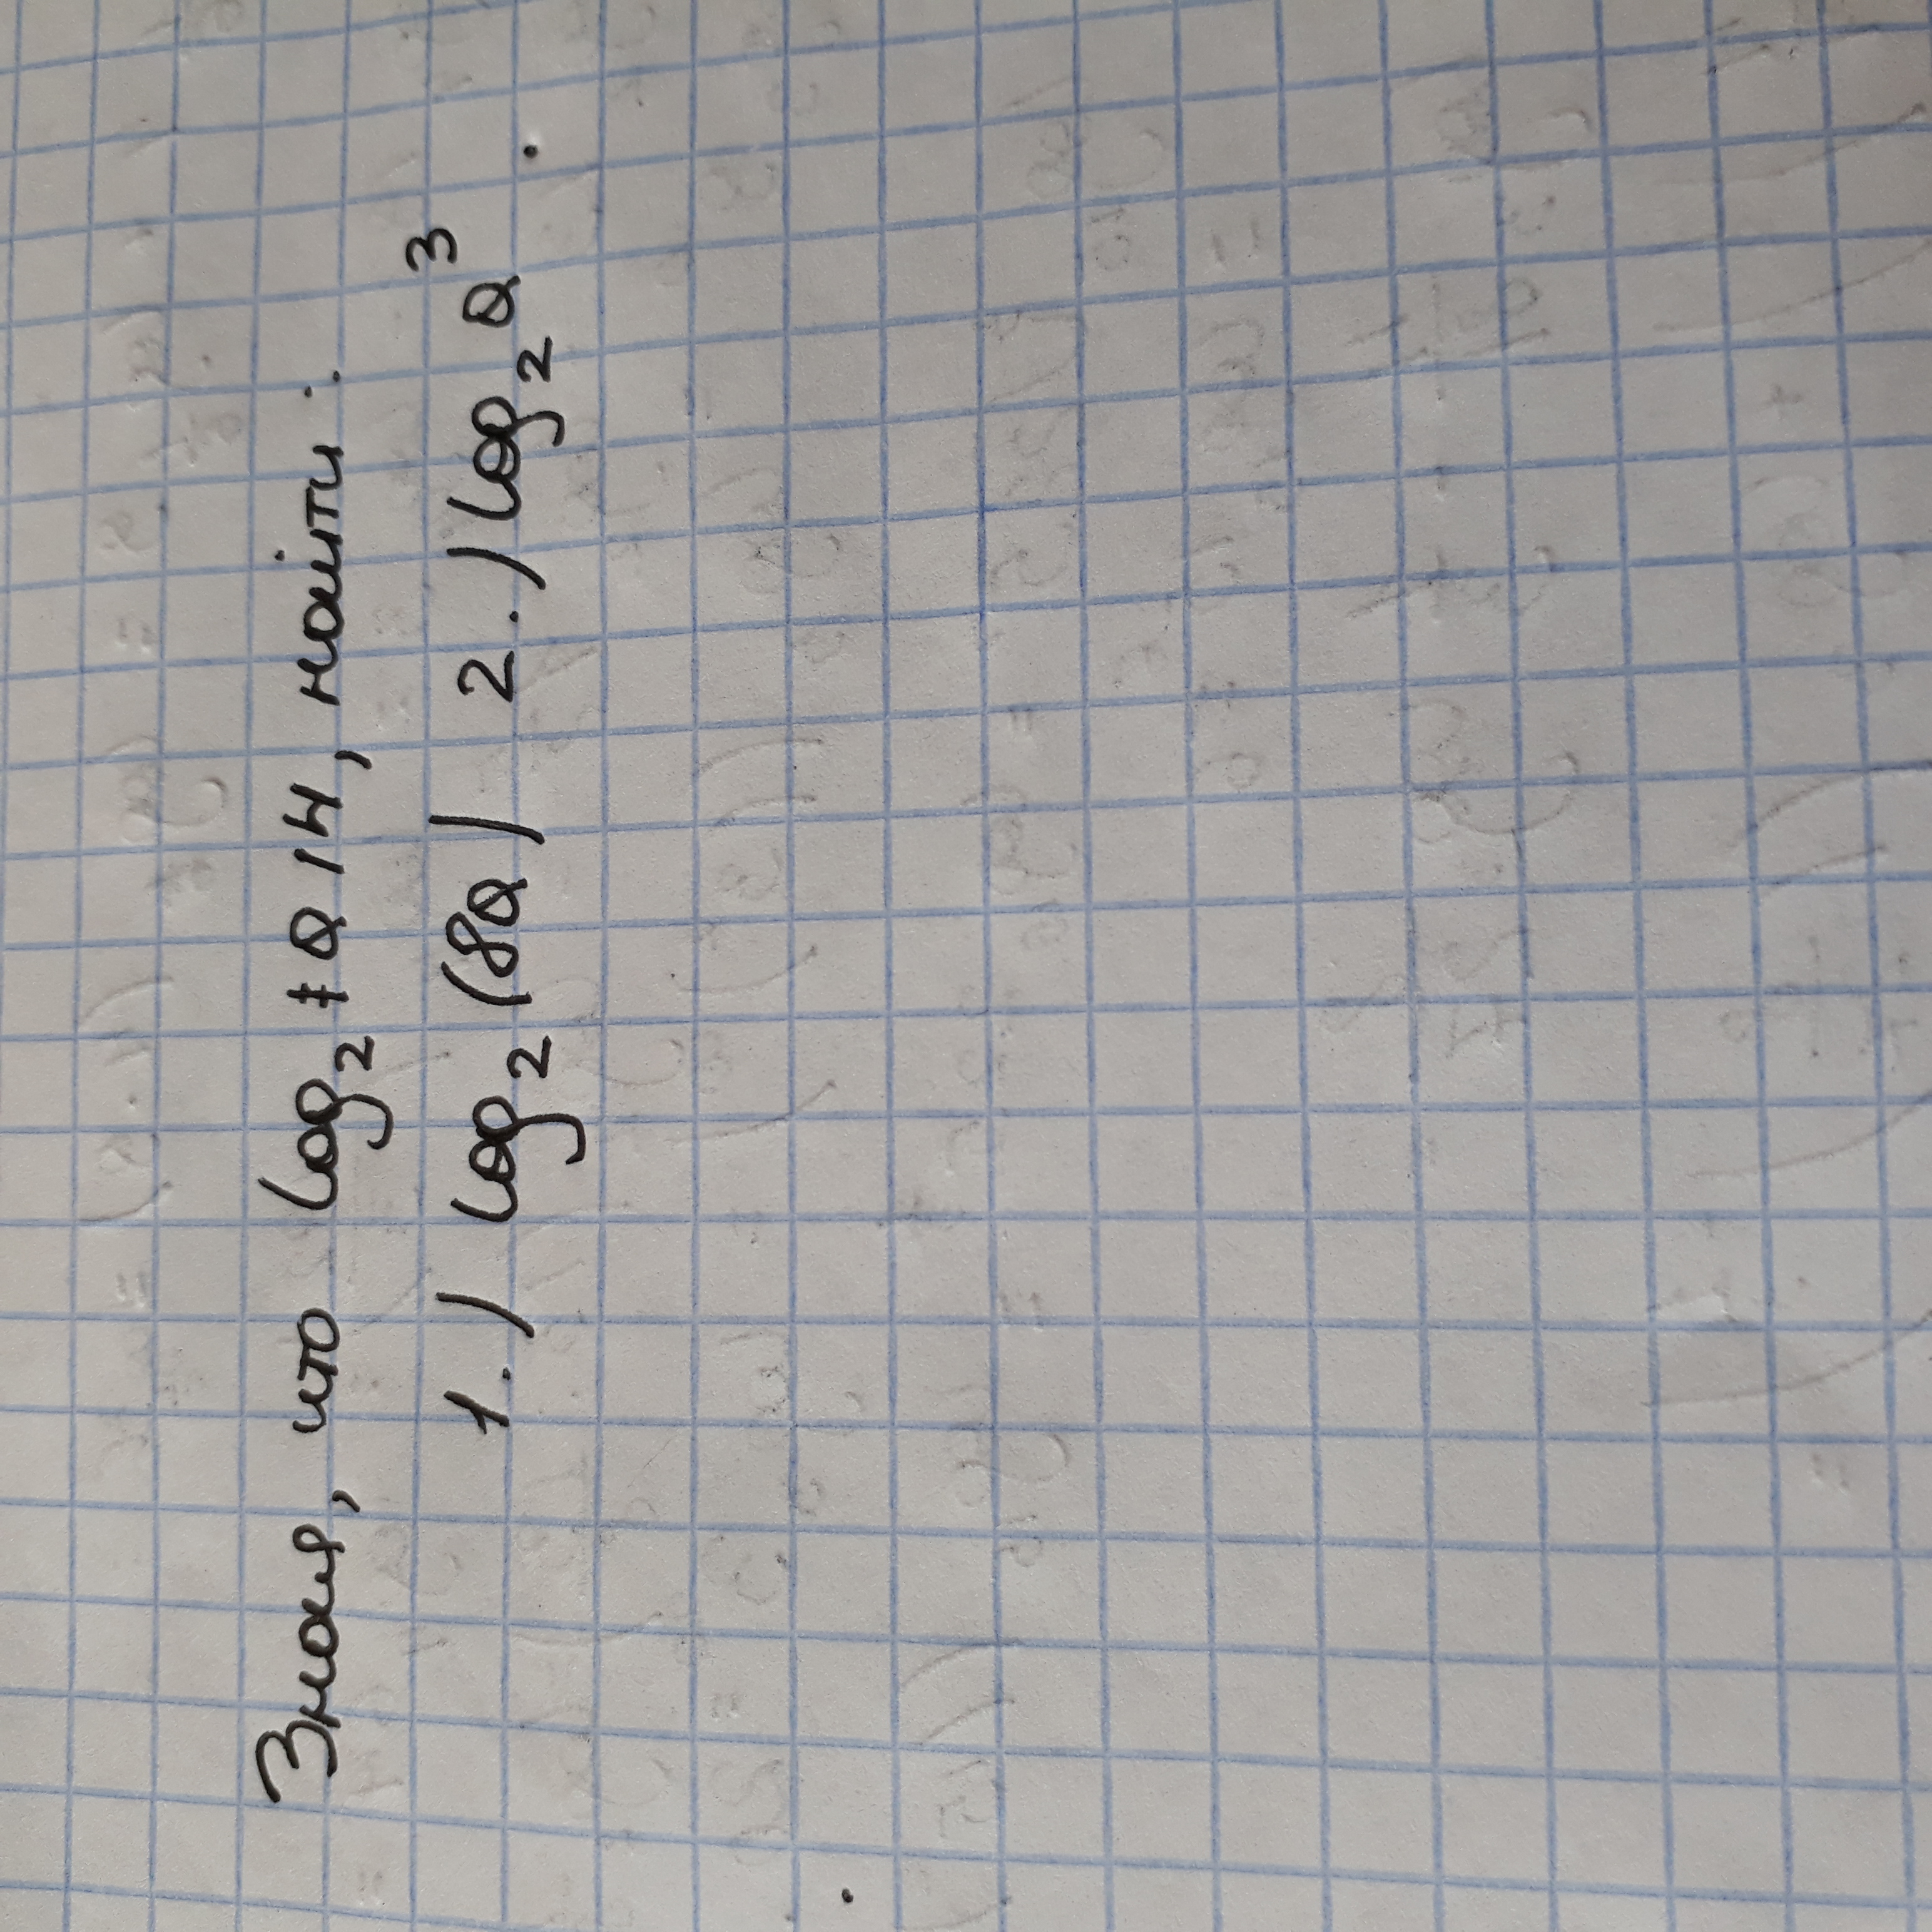 Зная, что log₂ ≠ a 14, найти:
1.) log₂(8a) 2.) log₂a³